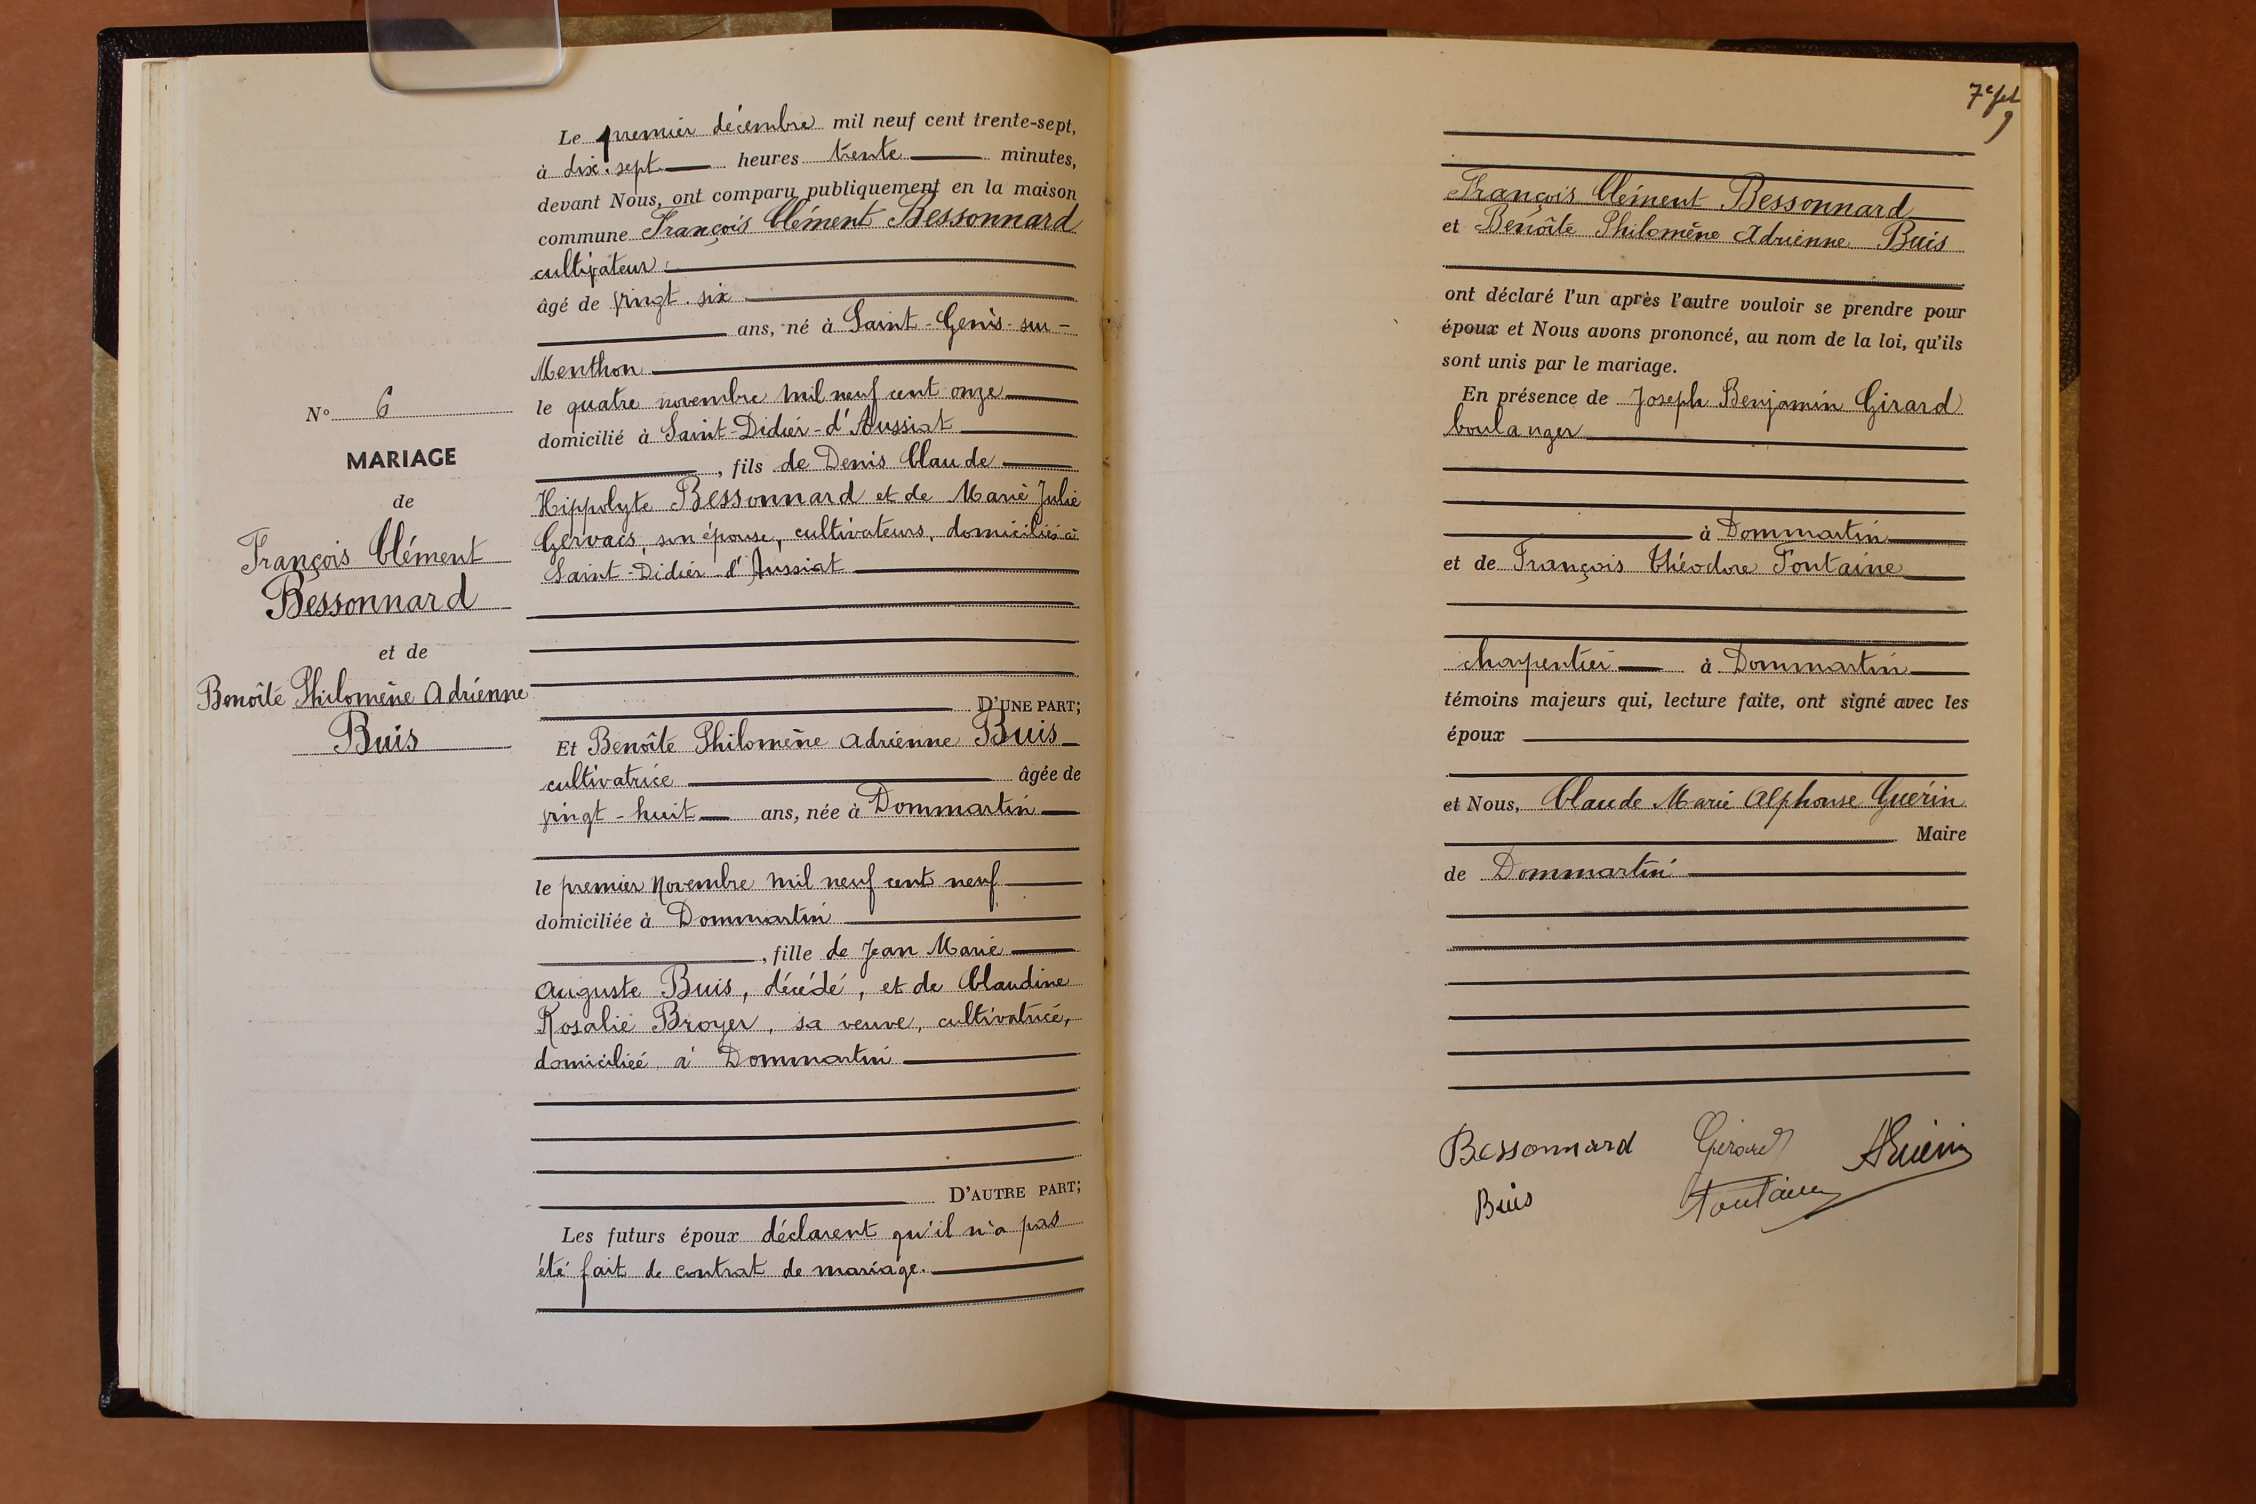 Le premier décembre mil neuf cent trente-sept,
à dix-sept heures trente minutes,
devant Nous, ont comparu publiquement en la maison
commune François Clément Bessonnard
cultivateur
âgé de vingt-six
ans, né à Saint-Genis-sur-
Menthon
le quatre novembre mil neuf cent onze
domicilié à Saint-Didier-d'Aussiat
, fils de Denis Claude
Hippolyte Bessonnard et de Marie Julie
Gervais, son épouse, cultivateurs, domiciliés à
Saint-Didier d'Aussiat
D'UNE PART;
Et Benoîte Philomène Adrienne Buis
cultivatrice âgée de
vingt-huit ans, née à Dommartin
le premier Novembre mil neuf cent neuf
domiciliée à Dommartin
, fille de Jean Marie
Auguste Buis, décédé, et de Claudine
Rosalie Broyer, sa veuve, cultivatrice,
domiciliée à Dommartin
D'AUTRE PART;
Les futurs époux déclarent qu'il n'a pas
été fait de contrat de mariage.
N° 6
MARIAGE
de
François Clément
Bessonnard
et de
Benoîte Philomène Adrienne
Buis
François Clément Bessonnard
et Benoîte Philomène Adrienne Buis
ont déclaré l'un après l'autre vouloir se prendre pour
époux et Nous avons prononcé, au nom de la loi, qu'ils
sont unis par le mariage.
En présence de Joseph Benjamin Girard
boulanger
à Dommartin
et de François Théodore Fontaine
charpentier à Dommartin
témoins majeurs qui, lecture faite, ont signé avec les
époux
et Nous, Claude Marie Alphonse Guérin
Maire
de Dommartin
Bessonnard Girard AGuérin
Buis Fontaine